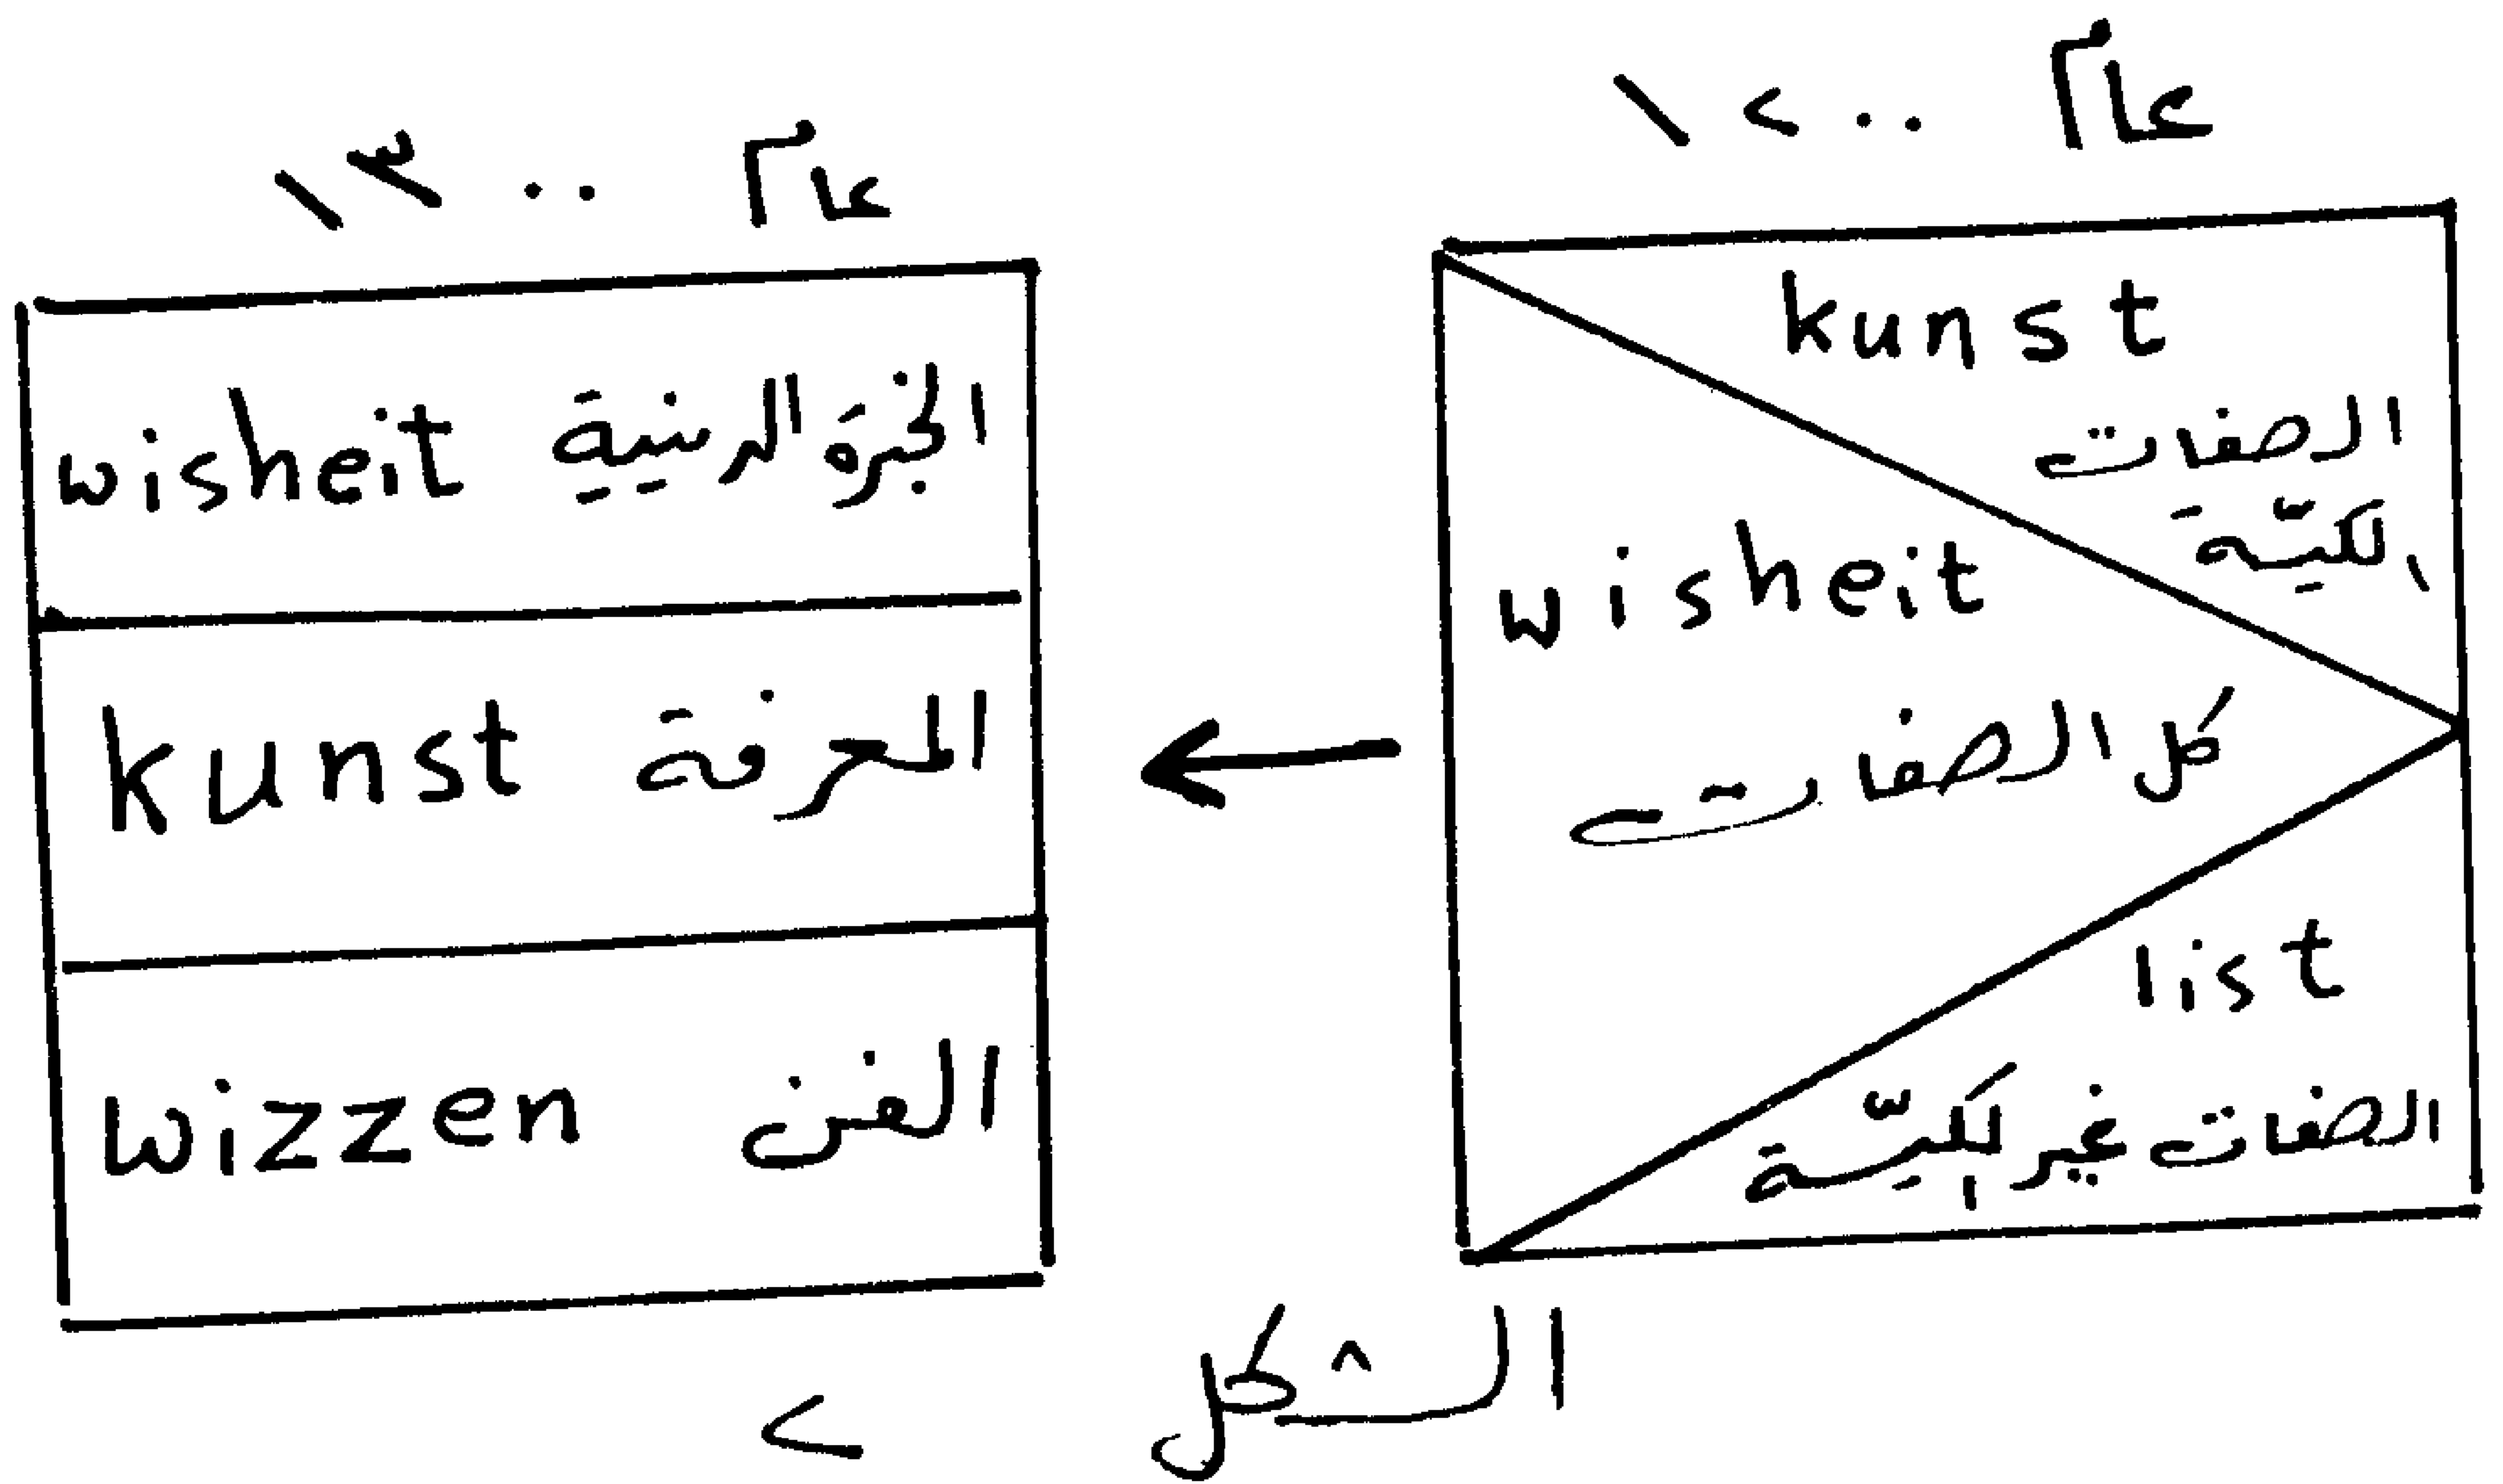 عام ١٢٠٠
kunst
الصفات
الكليّة
wisheit
كل الصفات
list
الصفات غير الكليّة
عام ١٣٠٠
wisheit الخبرة الدينية
kunst المعرفة
wizzen الفن
الشكل ٢